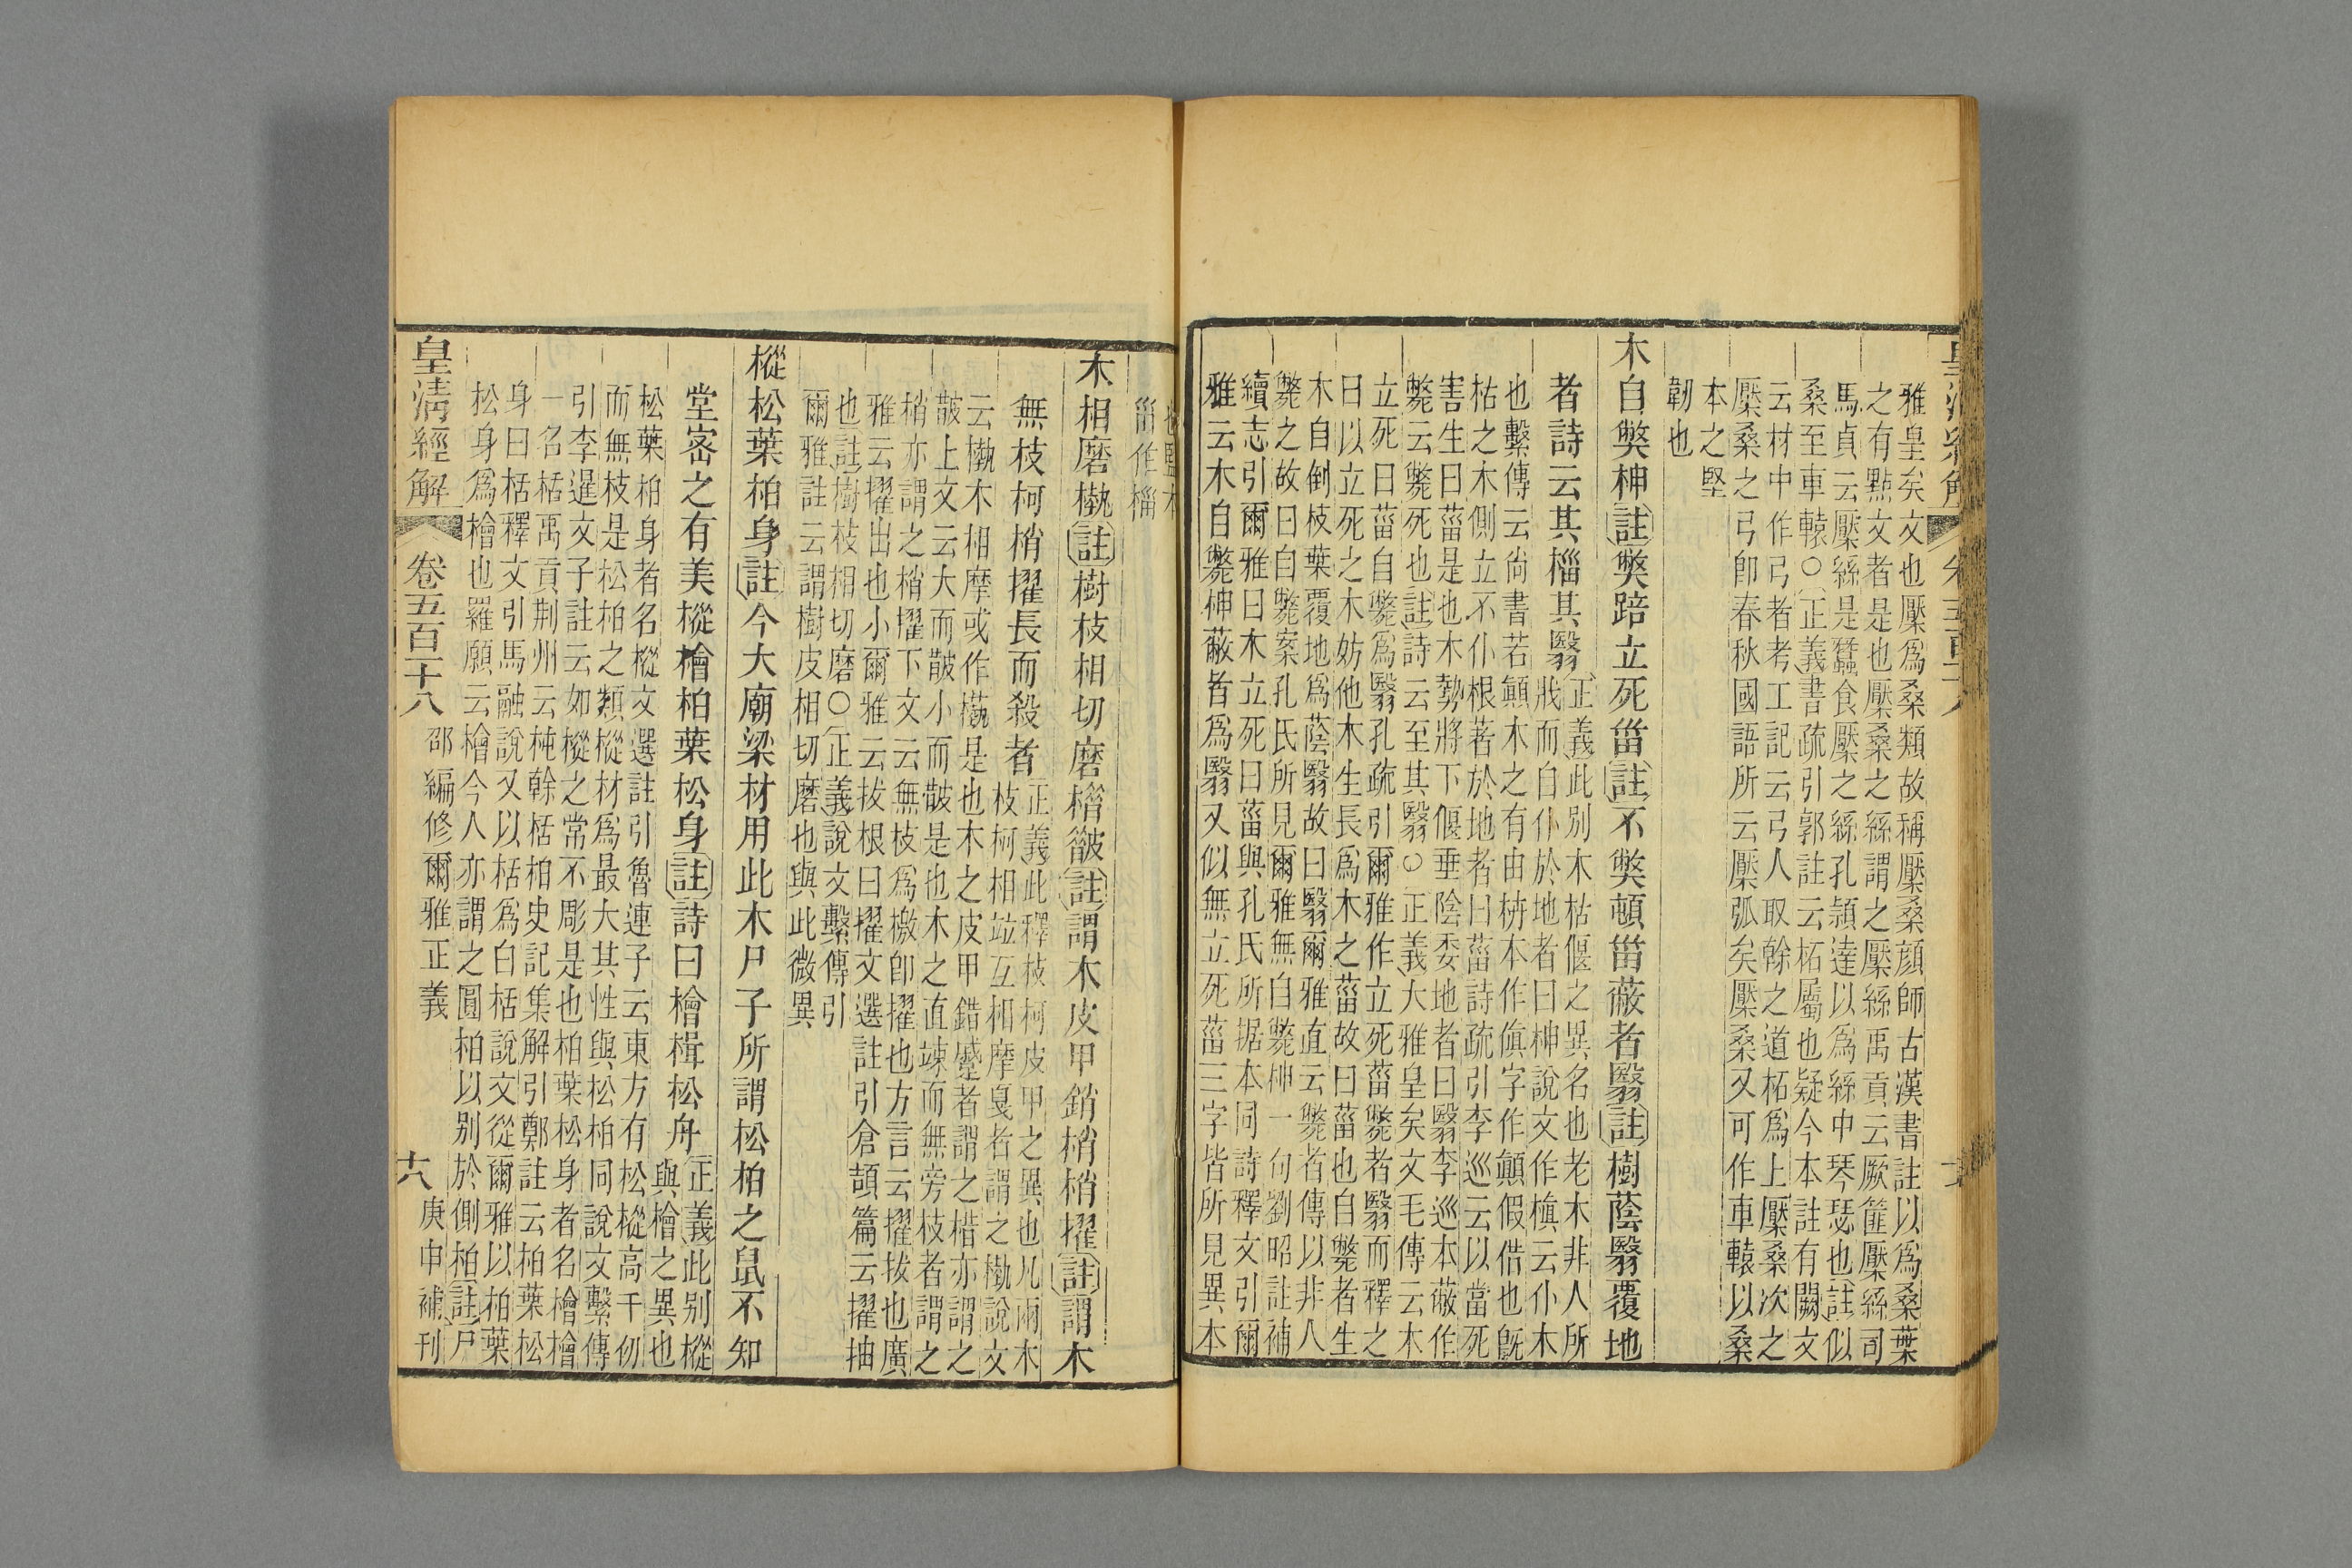 雅皇矣文也檿爲桑類故稱檿桑顔師古漢書註以爲桑葉
之有㸃文者是也檿桑之絲謂之檿絲禹貢云厥篚檿絲司
馬貞云檿絲是蠶食檿之絲孔頴達以爲絲中琴瑟也註似
桑至車轅○正義書疏引郭註云柘屬也疑今本註有闕文
云材中作弓者考工記云弓人取榦之道柘爲上檿桑次之
檿桑之弓卽春秋國語所云檿弧矣檿桑又可作車轅以桑
本之堅
韌也
木自獘柛註獘踣立死甾註不獘頓甾蔽者翳註樹蔭翳覆地
者詩云其椔其翳
正義此别木枯偃之異名也老木非人所
戕而自仆於地者曰柛說文作槙云仆木
也繫傳云尙書若顚木之有由枿本作傎字作顚假借也旣
枯之木側立不仆根著於地者曰菑詩疏引李巡云以當死
害生曰菑是也木勢將下偃垂陰委地者曰翳李巡本蔽作
斃云斃死也註詩云至其翳○正義大雅皇矣文毛傳云木
立死曰菑自斃爲翳孔疏引爾雅作立死菑斃者翳而釋之
曰以立死之木妨他木生長爲木之菑故曰菑也自斃者生
木自倒枝葉覆地爲蔭翳故曰翳爾雅直云斃者傳以非人
斃之故曰自斃案孔氏所見爾雅無自斃柛一句劉昭註補
續志引爾雅曰木立死曰菑與孔氏所据本同詩釋文引爾
雅云木自斃柛蔽者爲翳又似無立死菑三字皆所見異本
甾作椔
木相磨槸註樹枝相切磨棤㪚註謂木皮甲錯梢梢擢註謂木
無枝柯梢擢長而殺者
正義此釋枝柯皮甲之異也凡兩木
枝柯相竝互相摩戛者謂之槸說文
云槸木相摩或作㰔是也木之皮甲錯蹙者謂之棤亦謂之
㪚上文云大而㪚小而㪚是也木之直竦而無旁枝者謂之
梢亦謂之梢擢下文云無枝爲檄卽擢也方言云擢拔也廣
雅云擢出也小爾雅云拔根曰擢文選註引倉頡篇云擢抽
也註樹枝相切磨○正義說文繫傳引
爾雅註云謂樹皮相切磨也與此微異
樅松葉柏身註今大廟梁材用此木尸子所謂松柏之鼠不知
堂密之有美樅檜柏葉松身註詩曰檜楫松舟
正義此别樅
與檜之異也
松葉柏身者名樅文選註引魯連子云東方有松樅高千仞
而無枝是松柏之類樅材爲最大其性與松柏同說文繫傳
引李暹文子註云如樅之常不彫是也柏葉松身者名檜檜
一名栝禹貢荆州云杶榦栝柏史記集解引鄭註云柏葉松
身曰栝釋文引馬融說又以栝爲白栝說文從爾雅以柏葉
松身爲檜也羅願云檜今人亦謂之圓柏以别於側柏註尸
皇淸經解 卷五百十八 邵編修爾雅正義 十八 庚申補刊